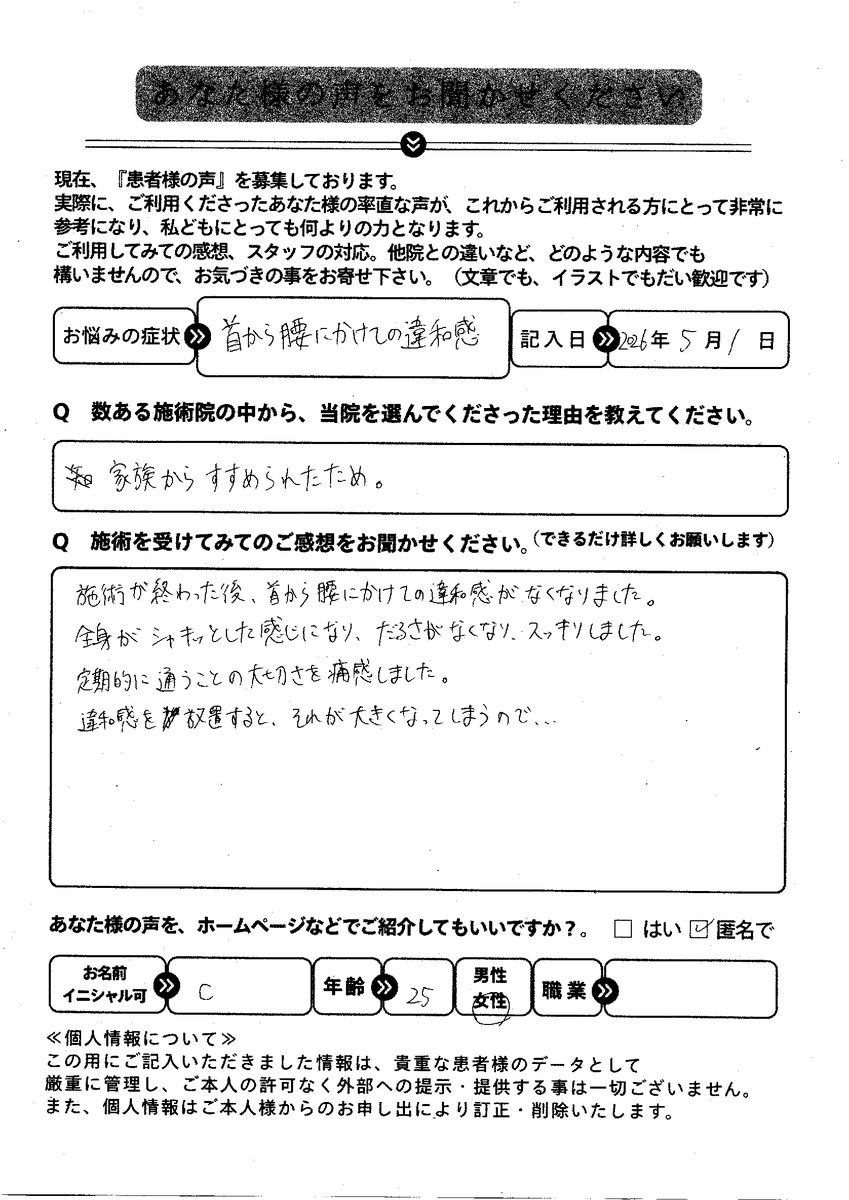 あなた様の声をお聞かせください
現在、『患者様の声』を募集しております。
実際に、ご利用くださったあなた様の率直な声が、これからご利用される方にとって非常に
参考になり、私どもにとっても何よりの力となります。
ご利用してみての感想、スタッフの対応。他院との違いなど、どのような内容でも
構いませんので、お気づきの事をお寄せ下さい。（文章でも、イラストでもだい歓迎です）
お悩みの症状 首から腰にかけての違和感 記入日 2026年 5月 1日
Q 数ある施術院の中から、当院を選んでくださった理由を教えてください。
家族からすすめられたため。
Q 施術を受けてみてのご感想をお聞かせください。（できるだけ詳しくお願いします）
施術が終わった後、首から腰にかけての違和感がなくなりました。
全身がシャキッとした感じになり、だるさがなくなり、スッキリしました。
定期的に通うことの大切さを痛感しました。
違和感を放置すると、それが大きくなってしまうので...
あなた様の声を、ホームページなどでご紹介してもいいですか？。 □ はい ☑ 匿名で
お名前 イニシャル可 C 年齢 25 男性 女性 職業
≪個人情報について≫
この用にご記入いただきました情報は、貴重な患者様のデータとして
厳重に管理し、ご本人の許可なく外部への提示・提供する事は一切ございません。
また、個人情報はご本人様からのお申し出により訂正・削除いたします。